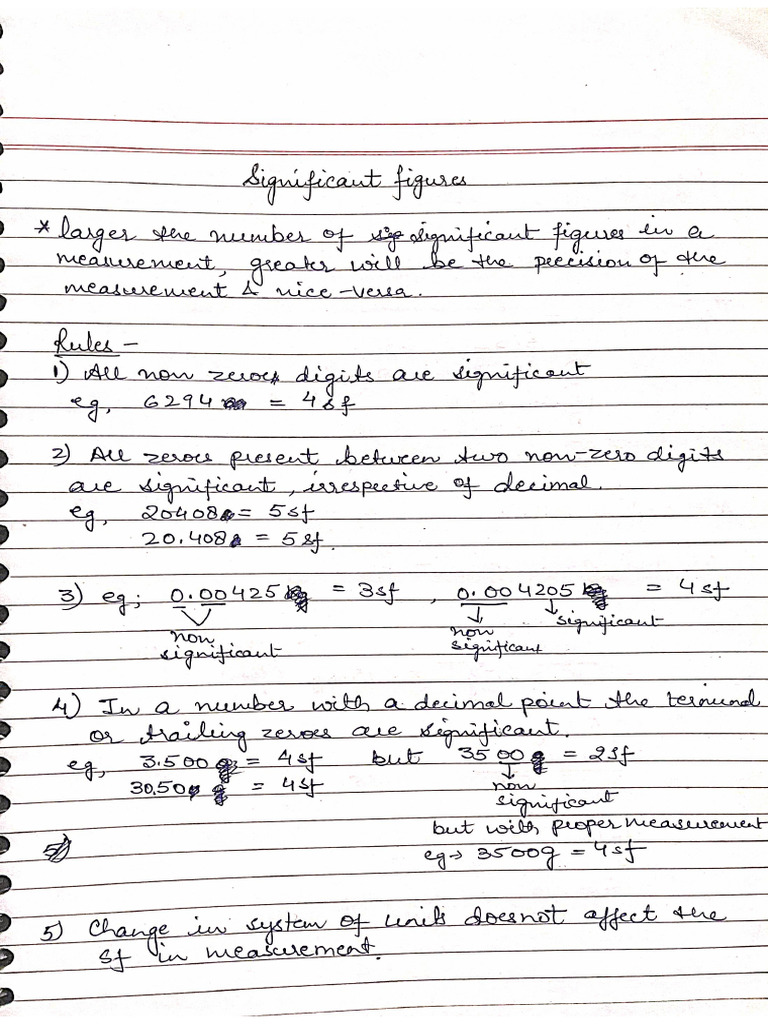 Significant figures
* larger the number of significant figures in a
measurement, greater will be the precision of the
measurement & nice-versa.
Rules -
1) All non zeroes digits are significant
eg, 6294 = 4sf
2) All zeroes present between two non-zero digits
are significant, irrespective of decimal.
eg, 20408 = 5sf
20.408 = 5sf.
3) eg; 0.00425 = 3sf, 0.004205 = 4sf
non significant
non significant
significant
4) In a number with a decimal point the terminal
or trailing zeroes are significant.
eg, 3.500 = 4sf but 3500 = 2sf
30.50 = 4sf
non
significant
but with proper measurement
eg→ 3500g = 4sf
5) Change in system of units doesnot affect the
sf in measurement.